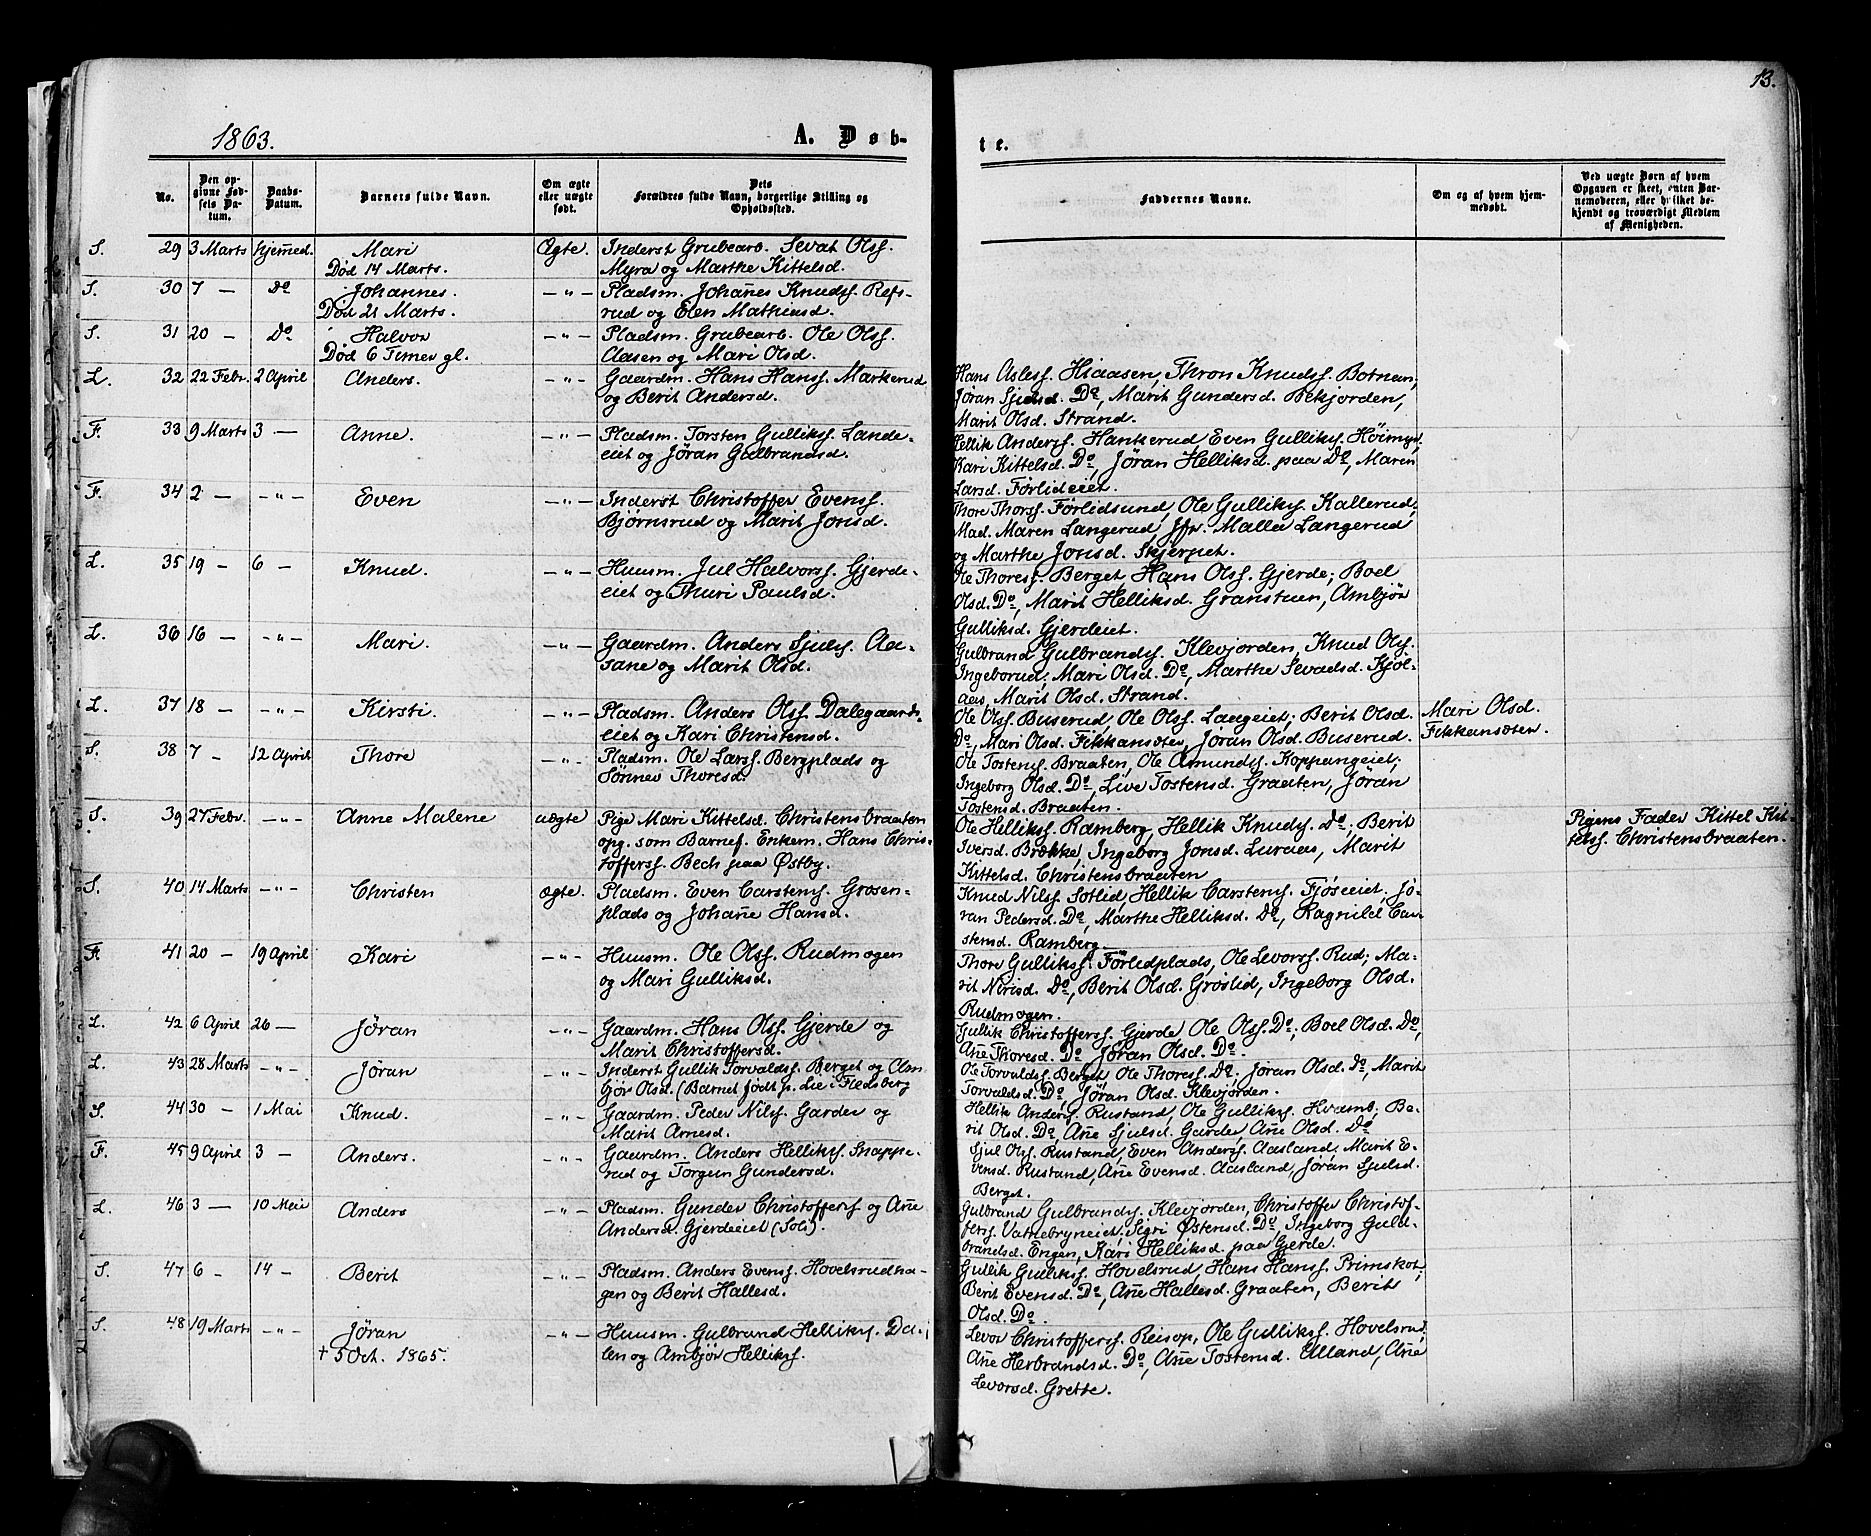 13.
1863.
A. Døb-
te.
No.
Den opgivne Fødsels Datum.
Daabs-Datum.
Barnets fulde Navn.
Om ægte eller uægte født.
Forældres fulde Navn, borgerlige Stilling og Opholdssted.
Faddernes Navne.
Om og af hvem hjemmedøbt.
Ved uægte Børn af hvem Opgaven er skeet, enten Barnemoderen, eller hvilket bekjendt og troværdigt Medlem af Menigheden.
S. 29 3 Marts hjemed. Mari Ægte. Inderst Grubearb. Sevat Olss.
Død 14 Marts. Myra og Marthe Kittelsd.
S. 30 7 — Do Johannes. —„— Pladsm. Johanes Knuds. Refs-
Død 21 Marts. rud og Elen Mathiasd.
S. 31 20 — Do Halvor —„— Pladsm. Grubearb. Ole Olss.
Død 6 Timer gl. Aasen og Mari Olsd.
L. 32 22 Febr. 2 April Anders. —„— Gaardm. Hans Hanss. Markerud
og Berit Andersd.
Hans Asless. Hiaasen, Thron Knudss. Botnen,
Jøran Sjulsd. Do, Marit Gundersd. Bekjorden,
Marit Olsd. Strand.
F. 33 9 Marts 3 — Anne. —„— Pladsm. Torsten Gulliks. Lande-
eiet og Jøran Gulbrandsd.
Hellik Anderss. Hankerud Even Gulliks. Höimyr,
Kari Kittelsd. Do, Jøran Helliksd. paa Do, Maren
Larsd. Førlideiet.
F. 34 2 — —„— Even —„— Inderst Christoffer Evenss.
Bjørnsrud og Marit Jonsd.
Thore Thorss. Førlidsund, Ole Gulliks. Kallerud,
Mad. Maren Langerud, Jfr. Malla Langerud
og Marthe Jonsd. Skjerpet.
L. 35 19 — 6 — Knud. —„— Huusm. Jul Halvorss. Gjerde-
eiet og Thuri Paulsd.
Ole Thoress. Berget, Hans Olss. Gjerde; Boel
Olsd. Do, Marit Helliksd. Granstuen, Ambjør
Gulliksd. Gjerdeiet.
L. 36 16 — —„— Mari. —„— Gaardm. Anders Sjuls. Aa-
sane og Marit Olsd.
Gulbrand Gulbrands. Klevjorden, Knud Olss.
Ingeborud; Mari Olsd. Do, Marthe Sevadsd. Kjøl-
aas, Marit Olsd. Strand.
L. 37 18 — —„— Kirsti. —„— Pladsm. Anders Olss. Dalegaards-
eiet og Kari Christensd.
Ole Olss. Buserud, Ole Olss. Langeiet; Berit Olsd.
Do, Mari Olsd. Fikkansæter, Jøran Olsd. Buserud.
Mari Olsd.
Fikkansæter.
S. 38 7 — 12 April Thore —„— Pladsm. Ole Larss. Bergplads og
Sønnev Thoresd.
Ole Tostens. Braaten, Ole Amunds. Koppangeiet;
Ingeborg Olsd. Do, Live Tostensd. Graaten, Jøran
Tostensd. Braaten.
S. 39 27 Febr. —„— Anne Malene uægte Pige Mari Kittelsd. Christensbraaten
opg. som Barnef. Enkem. Hans Chris-
tofferss. Bech paa Østby.
Ole Helliks. Ramberg, Hellik Knuds. Do; Berit
Iversd. Brække, Ingeborg Jonsd. Luraas, Marit
Kittelsd. Christensbraaten
Pigens Fader Kittel Kit-
telss. Christensbraaten.
S. 40 14 Marts —„— Christen ægte. Pladsm. Even Carstens. Grosen-
plads og Johane Hansd.
Knud Nilss. Sotlid, Hellik Carstens. Fjøseiet, Jø-
ran Pedersd. Do, Marthe Helliksd. Do, Ragnild Car-
stensd. Ramberg.
F. 41 20 — 19 April Kari —„— Huusm. Ole Olss. Rudmogen
og Mari Gulliksd.
Thore Gulliks. Førlidplads, Ole Levorss. Rud; Ma-
rit Nirisd. Do, Berit Olsd. Grøslid, Ingeborg Olsd.
Rudmogen.
L. 42 6 April 26 — Jøran —„— Gaardm. Hans Olss. Gjerde og
Marit Christoffersd.
Gullik Christofferss. Gjerde Ole Olss. Do; Boel Olsd. Do,
Ane Thoresd. Do Jøran Olsd. Do.
L. 43 28 Marts —„— Jøran —„— Inderst Gullik Torvalds. Berget og Am-
bjør Olsd. (Barnet født p. Lie i Flesberg
Ole Torvaldss. Berget Ole Thoress. Do. Jøran Olsd. Do, Marit
Torvaldsd. Do Jøran Olsd. Klevjorden.
S. 44 30 — 1 Mai Knud. —„— Gaardm. Peder Nilss. Garder og
Marit Arnesd.
Hellik Anders. Rustand, Ole Gulliks. Kvamb; Be-
rit Olsd. Do, Ane Sjulsd. Garder, Ane Olsd. Do
F. 45 9 April 3 — Anders. —„— Gaardm. Anders Helliks. Snappe-
rud og Torgun Gundersd.
Sjul Olss. Rustand, Even Anders. Aasland, Marit E-
vensd. Rustand, Ane Evensd. Aasland, Jøran Sjulsd.
Berget.
L. 46 3 — 10 Mai Anders —„— Pladsm. Gunder Christofferss og Ane
Andersd. Gjerdeeiet (Soli).
Gulbrand Gulbrands. Klevjorden, Christoffer Christof-
ferss. Vatnebryneiet; Sigri Østensd. Do, Ingeborg Guld-
brandsd. Engen, Kari Helliksd. paa Gjerde.
S. 47 6 — 14 — Berit —„— Pladsm. Anders Evenss. Hovelsrudha-
gen og Berit Hallesd.
Gullik Gulliks. Hovelsrud, Hans Hanss. Primskot,
Berit Evensd. Do, Ane Hallesd. Graaten, Berit
Olsd. Do.
S. 48 19 Marts —„— Jøran —„— Huusm. Gulbrand Helliks. Da-
† 5 Oct. 1865. len og Ambjør Helliks.
Levor Christofferss. Reisop, Ole Gulliks. Hovelsrud,
Ane Herbrandsd. Do, Ane Tostensd. Ulland, Ane
Levorsd. Grette.